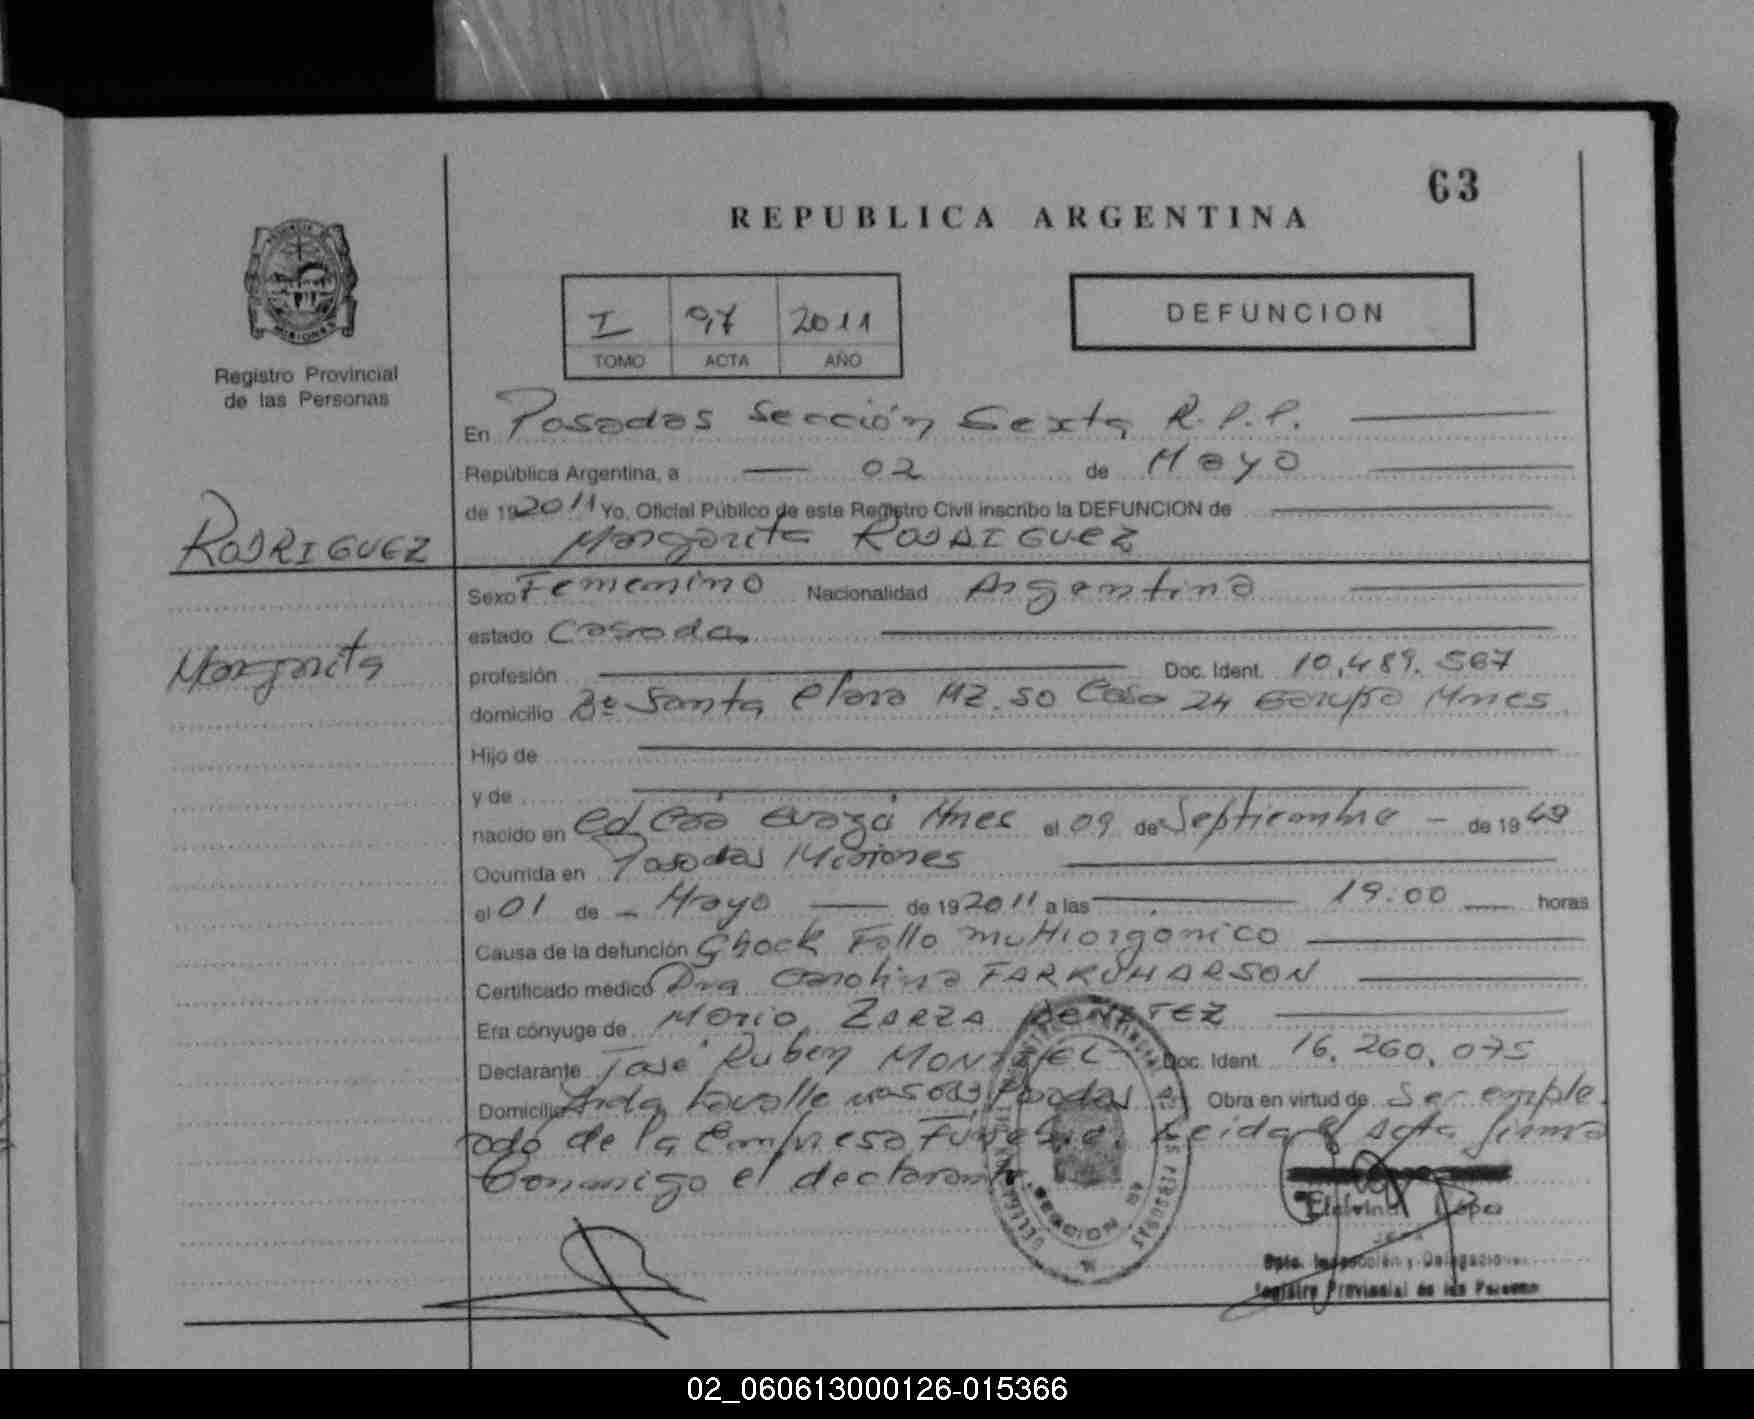 63
REPUBLICA ARGENTINA
I 97 2011
TOMO ACTA AÑO
DEFUNCION
Registro Provincial
de las Personas
En Posadas Sección Sexta R.P.P.
República Argentina, a 02 de Mayo
de 192011 Yo, Oficial Público de este Registro Civil inscribo la DEFUNCION de
Margarita RODRIGUEZ
RODRIGUEZ
Margarita
Sexo Femenino Nacionalidad Argentina
estado Casada
profesión Doc. Ident. 10.489.567
domicilio Bº Santa Clara MZ. 50 Casa 24 Garupa Mnes
Hijo de
y de
nacido en Mnes el 09 de Septiembre - de 1949
Ocurrida en Posadas Misiones
el 01 de - Mayo de 192011 a las 19.00 horas
Causa de la defunción Shock Fallo multiorganico
Certificado médico Dra Carolina FARKUHARSON
Era cónyuge de Mario ZARZA BENITEZ
Declarante José Ruben MONTIEL Doc. Ident. 16.260.075
Domicilio Avda Lavalle Posadas Obra en virtud de Ser emple
ado de la Empresa Fúnebre. Leida el Acta firma
Conmigo el declarante.
López
JEFA
Dpto. Inspección y Delegaciones
Registro Provincial de las Personas
02_060613000126-015366